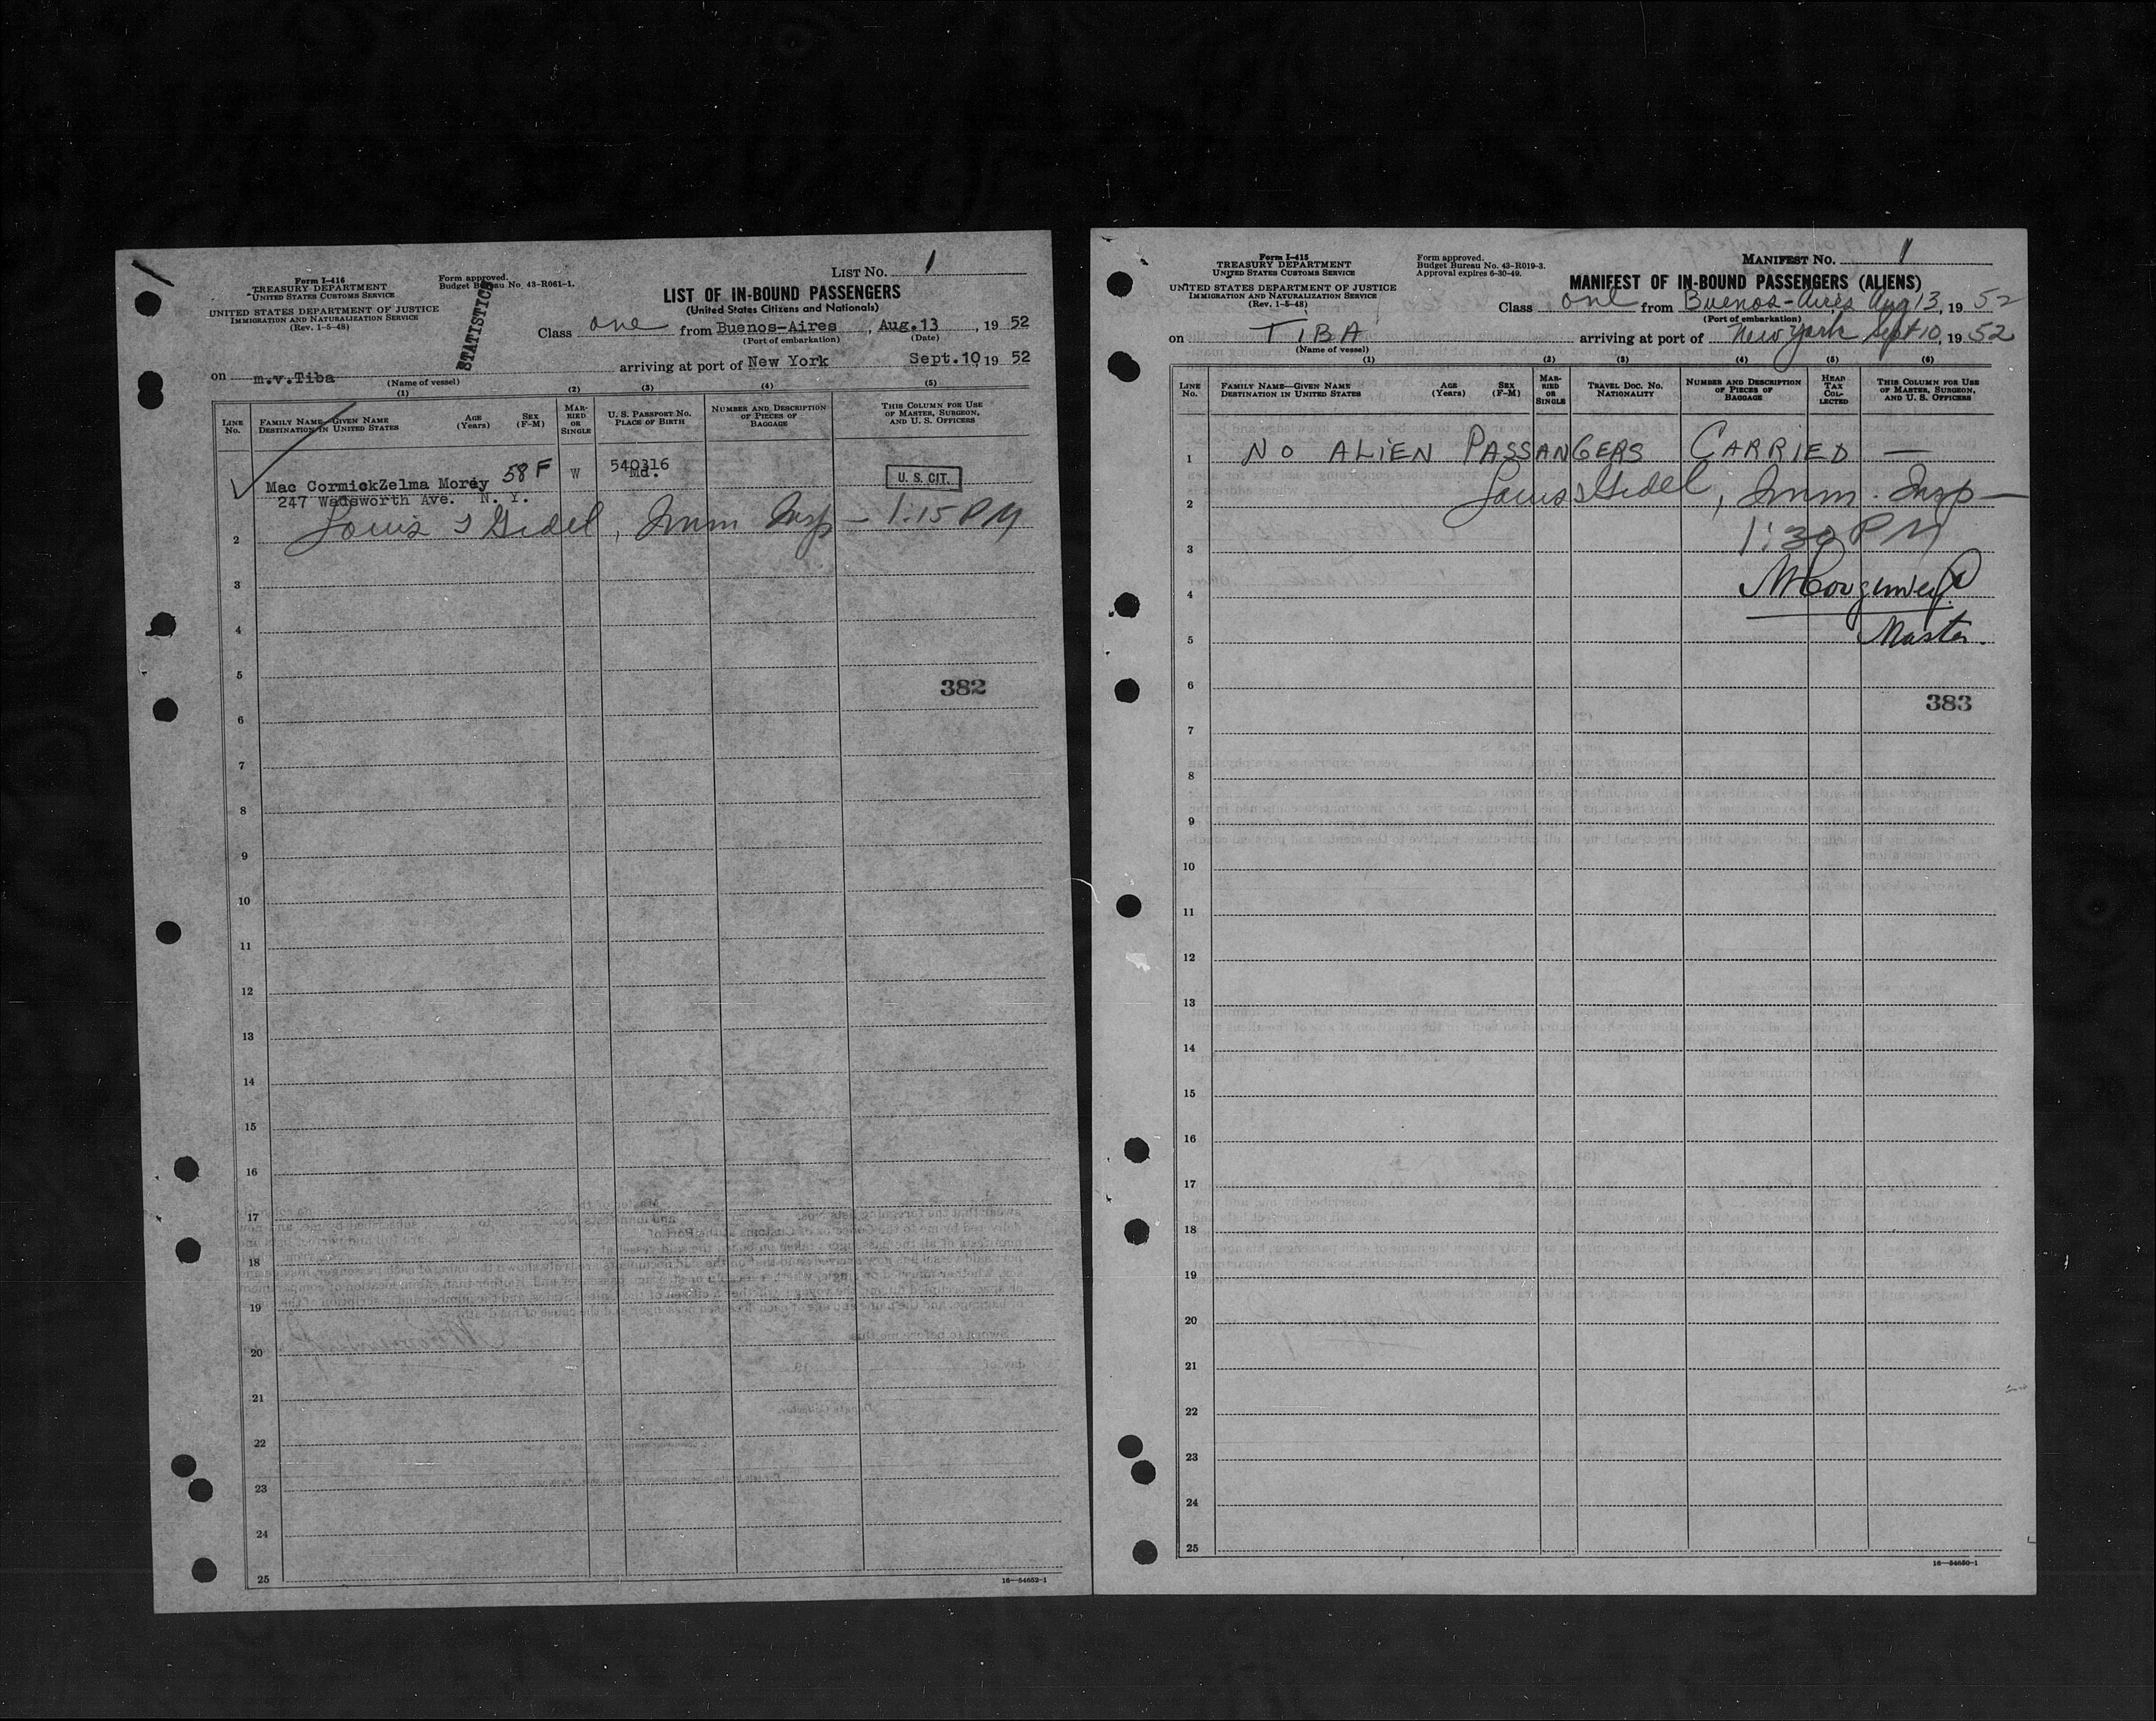 LIST NO. 1
Form I-416
TREASURY DEPARTMENT
UNITED STATES CUSTOMS SERVICE
UNITED STATES DEPARTMENT OF JUSTICE
IMMIGRATION AND NATURALIZATION SERVICE
(Rev. 1-5-48)
Form approved.
Budget Bureau No. 43-R061-1.
STATISTICS
LIST OF IN-BOUND PASSENGERS
(United States Citizens and Nationals)
Class one from Buenos-Aires, Aug.13, 19 52
(Port of embarkation) (Date)
on m.v.Tiba arriving at port of New York Sept.10, 19 52
(Name of vessel)
(1) (2) (3) (4) (5)
LINE No.
FAMILY NAME—GIVEN NAME
DESTINATION IN UNITED STATES
AGE (Years)
SEX (F-M)
MARRIED OR SINGLE
U. S. PASSPORT No.
PLACE OF BIRTH
NUMBER AND DESCRIPTION OF PIECES OF BAGGAGE
THIS COLUMN FOR USE OF MASTER, SURGEON, AND U. S. OFFICERS
1 Mac CormickZelma Morey 58 F W 540316 U. S. CIT.
247 Wadsworth Ave. N. Y. Md.
2 Louis J Gidel, Imm Insp — 1:15 PM
3
4
5
382
6
7
8
9
10
11
12
13
14
15
16
17
18
19
20
21
22
23
24
25
16—54652-1
MANIFEST NO. 1
Form I-415
TREASURY DEPARTMENT
UNITED STATES CUSTOMS SERVICE
UNITED STATES DEPARTMENT OF JUSTICE
IMMIGRATION AND NATURALIZATION SERVICE
(Rev. 1-5-48)
Form approved.
Budget Bureau No. 43-R019-3.
Approval expires 6-30-49.
MANIFEST OF IN-BOUND PASSENGERS (ALIENS)
Class one from Buenos-Aires Aug 13, 19 52
(Port of embarkation)
on TIBA arriving at port of New York Sept 10, 19 52
(Name of vessel)
(1) (2) (3) (4) (5) (6)
LINE No.
FAMILY NAME—GIVEN NAME
DESTINATION IN UNITED STATES
AGE (Years)
SEX (F-M)
MARRIED OR SINGLE
TRAVEL DOC. NO.
NATIONALITY
NUMBER AND DESCRIPTION OF PIECES OF BAGGAGE
HEAD TAX COLLECTED
THIS COLUMN FOR USE OF MASTER, SURGEON, AND U. S. OFFICERS
1 NO ALIEN PASSANGERS CARRIED —
2 Louis J Gidel, Imm. Insp —
3 1:30 PM
4
5 Master.
6
383
7
8
9
10
11
12
13
14
15
16
17
18
19
20
21
22
23
24
25
16—54650-1